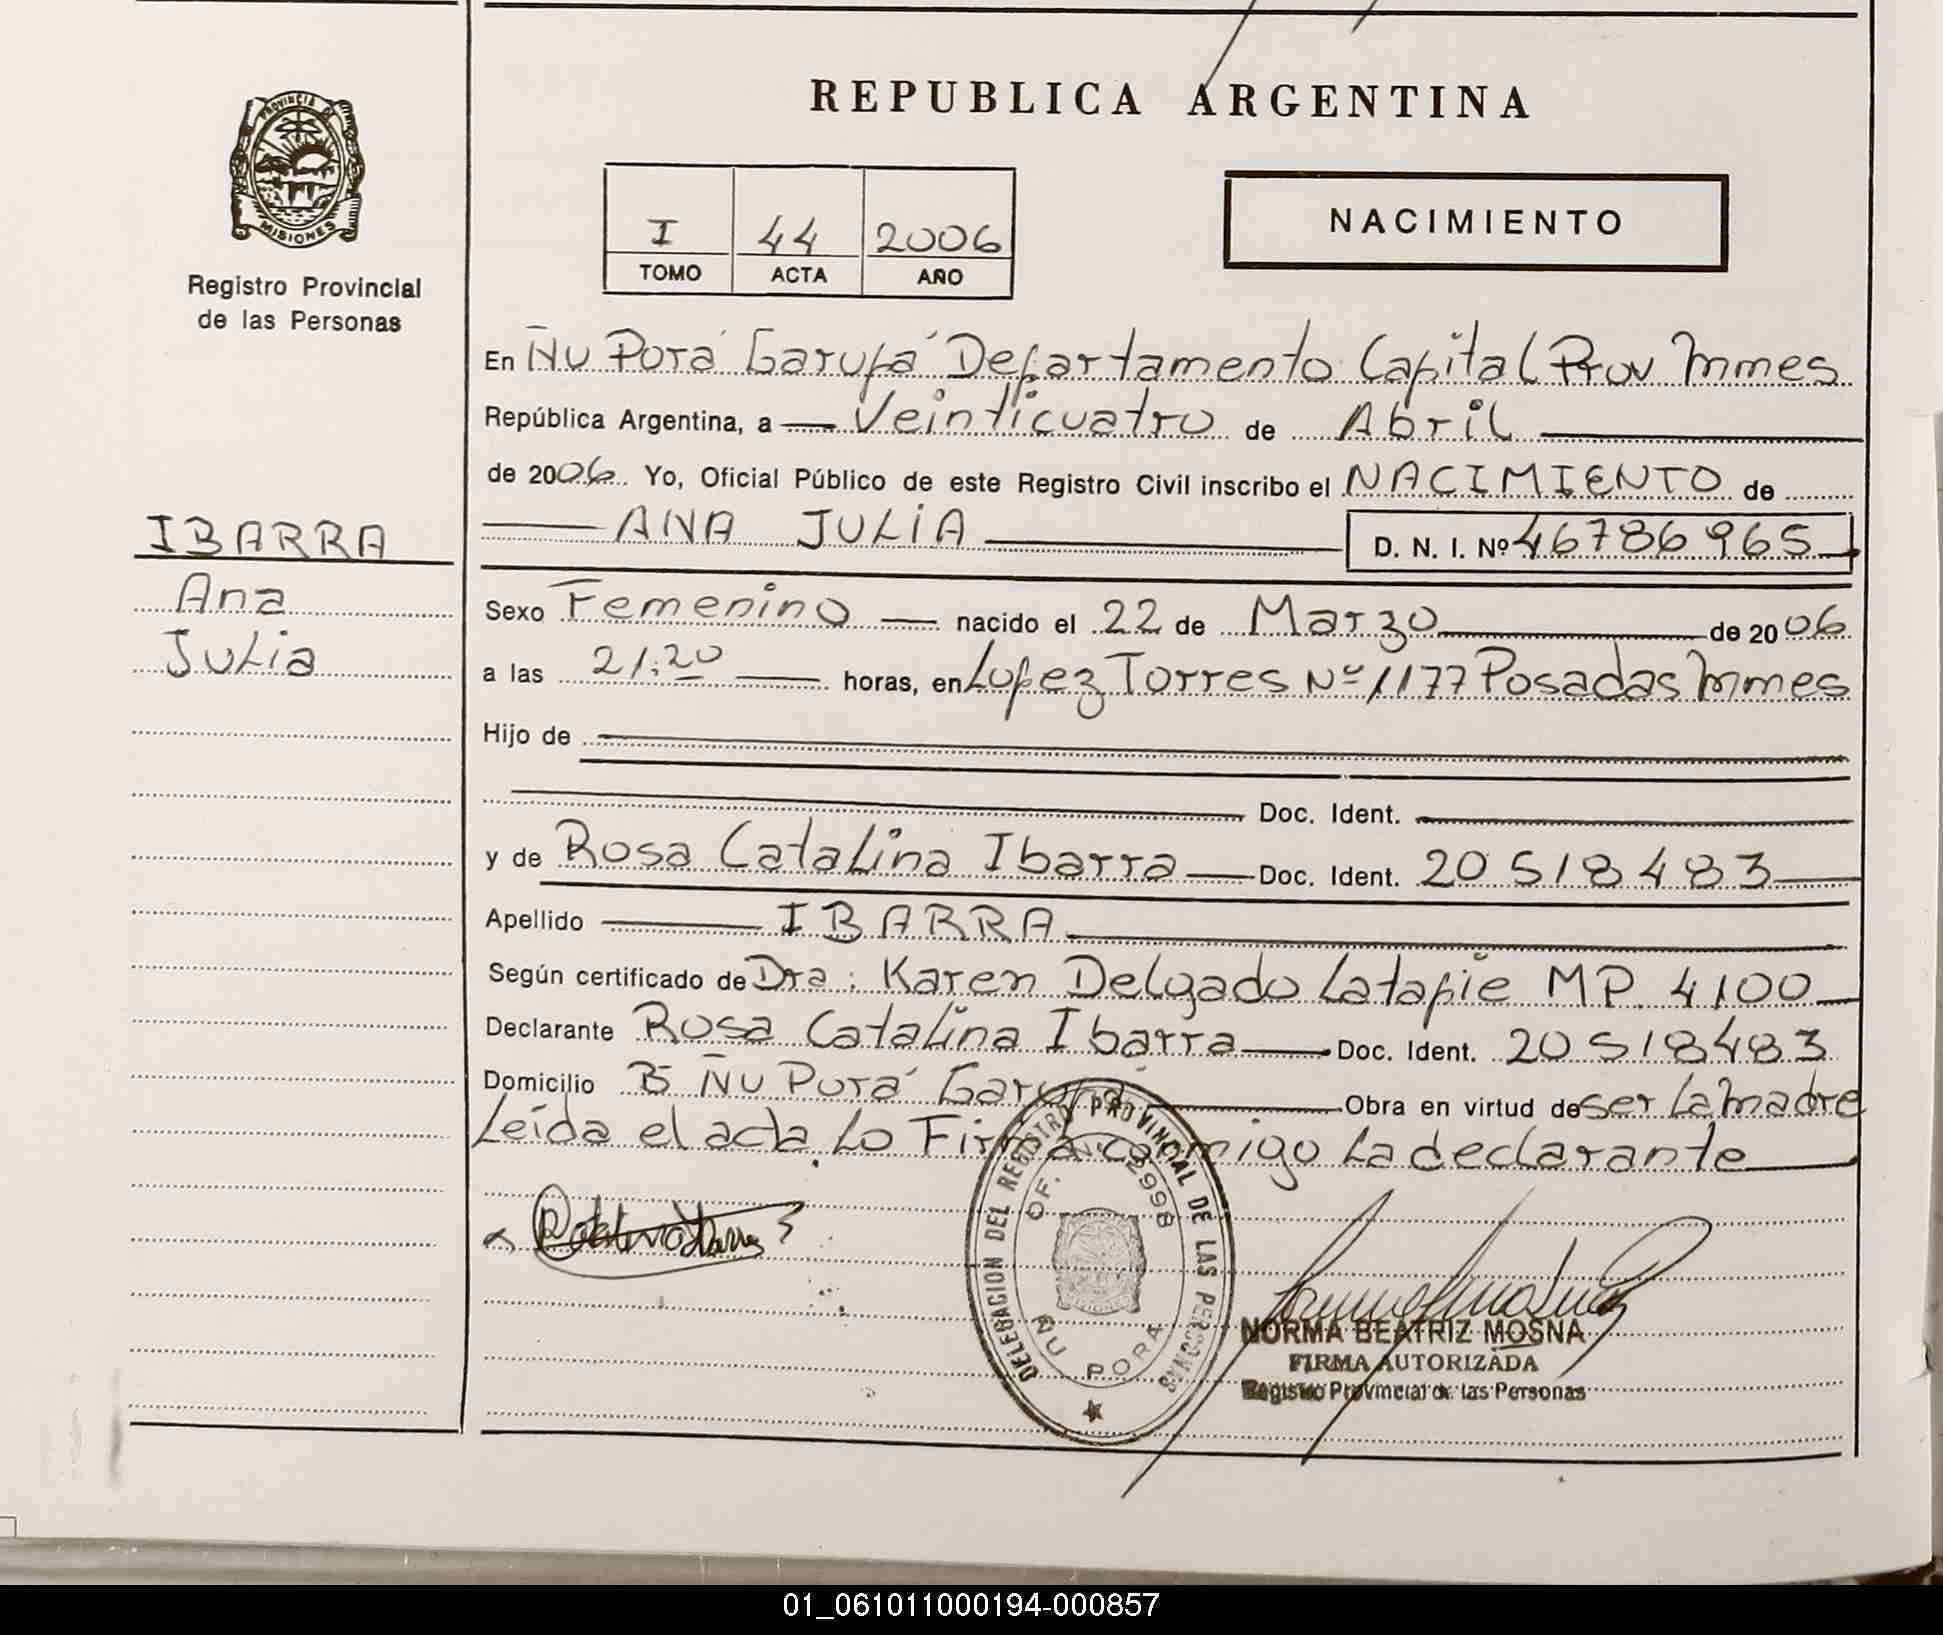 REPUBLICA ARGENTINA
PROVINCIA DE
MISIONES
Registro Provincial
de las Personas
I 44 2006
TOMO ACTA AÑO
NACIMIENTO
En Ñu Porá Garupá Departamento Capital Prov Mnes
República Argentina, a Veinticuatro de Abril
de 2006. Yo, Oficial Público de este Registro Civil inscribo el NACIMIENTO de
IBARRA
Ana
Julia
ANA JULIA D. N. I. Nº 46786965
Sexo Femenino nacido el 22 de Marzo de 2006
a las 21:20 horas, en Lopez Torres Nº 1177 Posadas Mnes
Hijo de
Doc. Ident.
y de Rosa Catalina Ibarra Doc. Ident. 20518483
Apellido IBARRA
Según certificado de Dra: Karen Delgado Latapie MP. 4100
Declarante Rosa Catalina Ibarra Doc. Ident. 20518483
Domicilio Bº Ñu Porá Garupá Obra en virtud de ser La Madre
Leída el acta Lo Firma conmigo La declarante
DELEGACION DEL REGISTRO PROVINCIAL DE LAS PERSONAS
OF. N. 2998
ÑU PORA
NORMA BEATRIZ MOSNA
FIRMA AUTORIZADA
Registro Provincial de las Personas
01_061011000194-000857